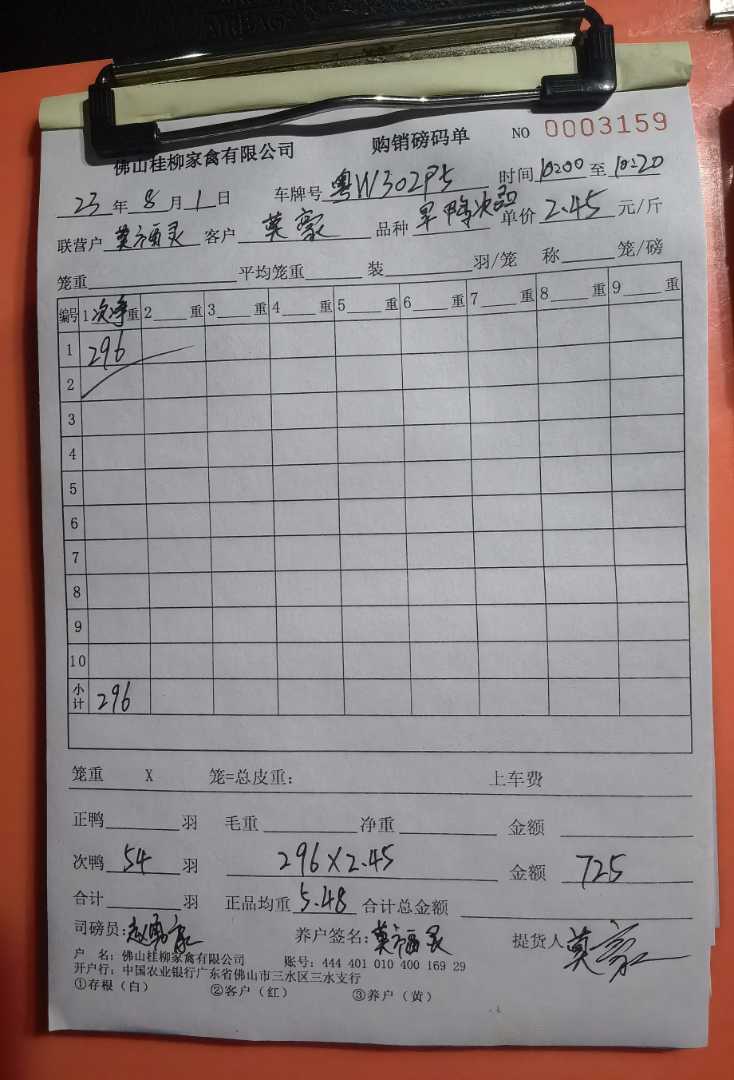 佛山桂柳家禽有限公司 购销磅码单 NO 0003159
23年8月1日 车牌号 粤W302P5 时间10:00至10:20
联营户 莫福灵 客户 莫豪 品种 旱鸭次品 单价 2.45 元/斤
笼重 平均笼重 装 羽/笼 称 笼/磅
编号 1次净重 2 重 3 重 4 重 5 重 6 重 7 重 8 重 9 重
1 296
2
3
4
5
6
7
8
9
10
小计 296
笼重 X 笼=总皮重: 上车费
正鸭 羽 毛重 净重 金额
次鸭 54 羽 296X2.45 金额 725
合计 羽 正品均重 5.48 合计总金额
司磅员: 养户签名:莫福灵 提货人 莫豪
户 名: 佛山桂柳家禽有限公司 账号: 444 401 010 400 169 29
开户行: 中国农业银行广东省佛山市三水区三水支行
①存根(白) ②客户(红) ③养户(黄)